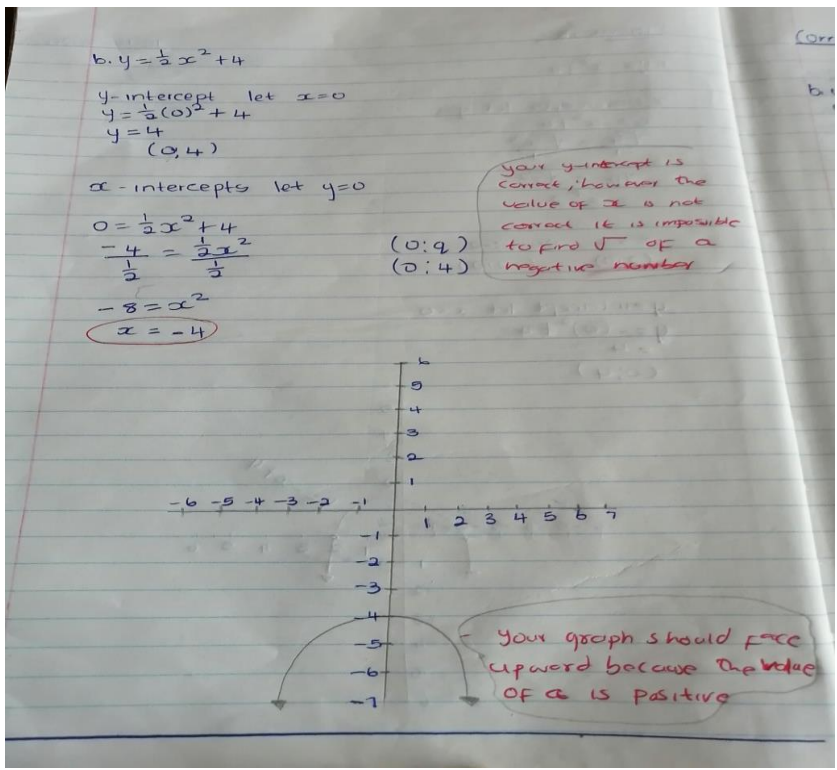 Corr
b. y = ½ x² + 4
b.
y-intercept let x=0
y = ½ (0)² + 4
y = 4
(0,4)
x-intercepts let y=0
0 = ½ x² + 4
-4/½ = ½x²/½
-8 = x²
x = -4
(0;q)
(0;4)
your y-intercept is
correct, however the
value of x is not
correct it is impossible
to find √ of a
negative number
6
5
4
3
2
1
-6 -5 -4 -3 -2 -1
1 2 3 4 5 6 7
-1
-2
-3
-4
-5
-6
-7
Your graph should face
upward because the value
of a is positive